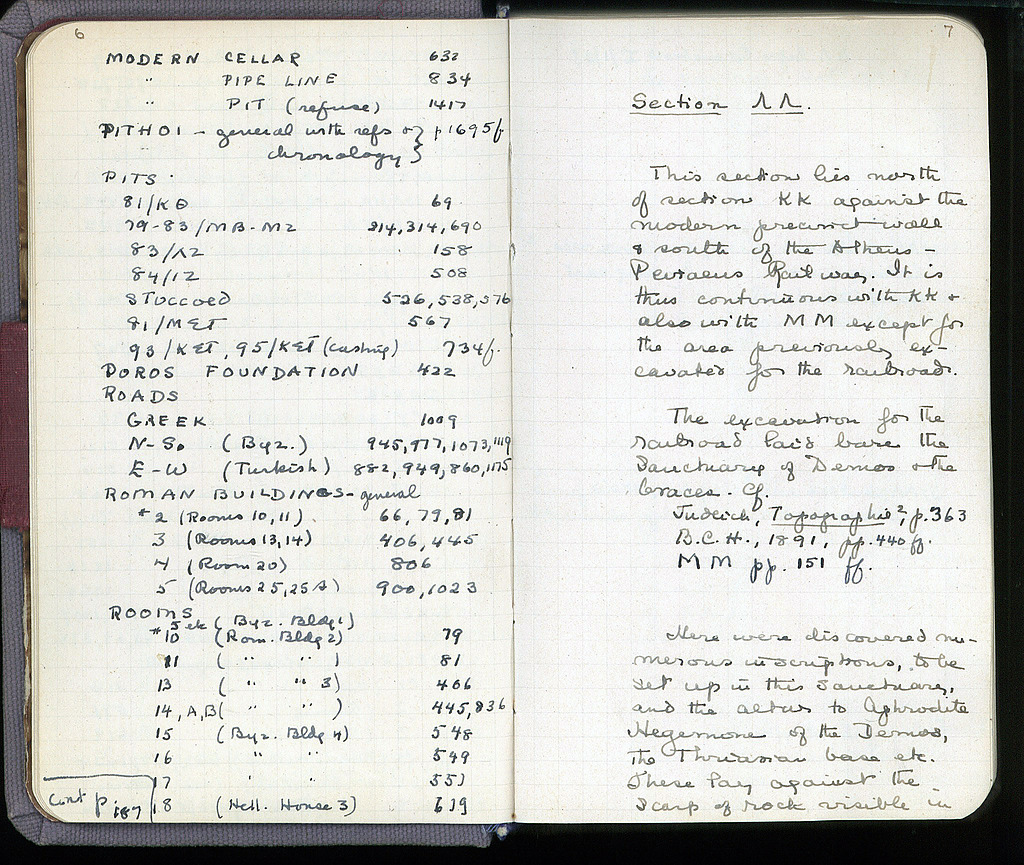 6
MODERN CELLAR 632
" PIPE LINE 834
" PIT (refuse) 1417
PITHOI - general with refs } p1695f.
chronology }
PITS.
81/KΘ 69
79-83/MB-MZ 214, 314, 690
83/ΛZ 158
84/IZ 508
STUCCOED 526, 538, 576
81/MΣT 567
93/KΣT, 95/KΣT (casting) 734f.
POROS FOUNDATION 422
ROADS
GREEK 1009
N-So (Byz.) 945, 977, 1073, 1119
E-W (Turkish) 882, 949, 860, 1175
ROMAN BUILDINGS - general
#2 (Rooms 10, 11) 66, 79, 81
3 (Rooms 13, 14) 406, 445
4 (Room 20) 806
5 (Rooms 25, 25A) 900, 1023
ROOMS
5 etc (Byz. Bldg 1)
#10 (Rom. Bldg 2) 79
11 ( " " ) 81
13 ( " " 3) 406
14, A, B ( " " ) 445, 836
15 (Byz. Bldg 4) 548
16 " " 549
17 " " 553
18 (Hell. House 3) 639
Cont p. 187
7
Section ΛΛ.
This section lies north
of section KK against the
modern precinct wall
& south of the Athens -
Peiraeus Railway. It is
thus continuous with KK &
also with MM except for
the area previously ex-
cavated for the railroad.
The excavation for the
railroad laid bare the
Sanctuary of Demos & the
Graces. Cf.
Judeich, Topographie², p. 363
B.C.H., 1891, pp. 440 ff.
MM pp. 151 ff.
Here were discovered nu-
merous inscriptions, to be
set up in this sanctuary,
and the altar to Aphrodite
Hegemone of the Demos,
the Thriasian base etc.
These lay against the
scarp of rock visible in